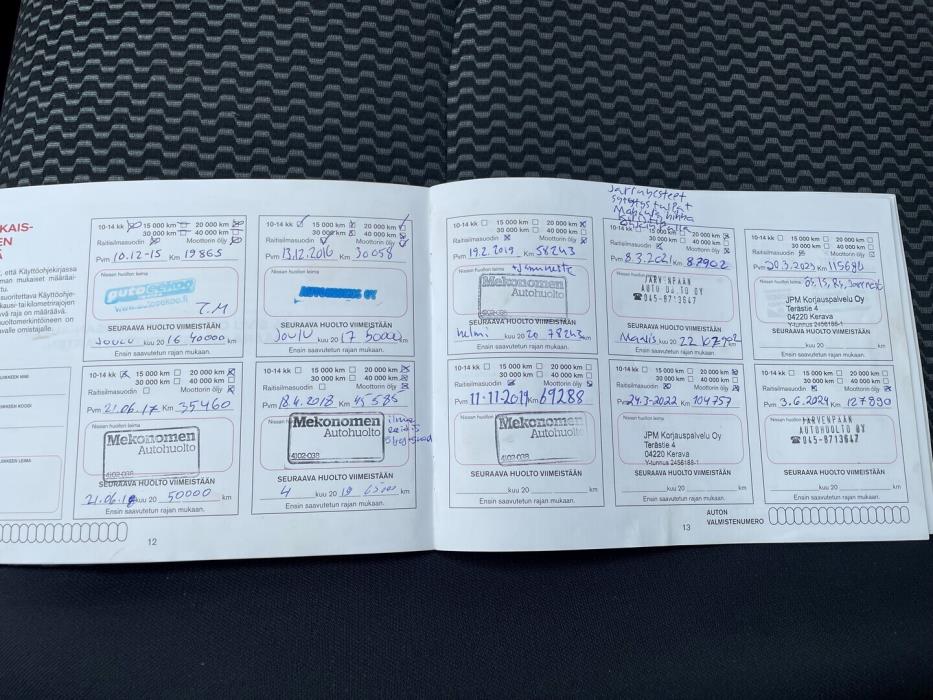 KAIS-
EN
Ä
että Käyttöohjekirjassa
man mukaiset määräai-
suoritettava Käyttöohje-
kausi- tai kilometrirajojen
vä raja on määräävä.
uoltomerkintöineen on
avalle omistajalle.
10-14 kk 15 000 km 20 000 km
30 000 km 40 000 km
Raitisilmasuodin Moottorin öljy
Pvm 10.12-15 Km 19865
Nissan huollon leima
autogekoo
T.M
SEURAAVA HUOLTO VIIMEISTÄÄN
JOULU kuu 20 16 40000 km
Ensin saavutetun rajan mukaan.
10-14 kk 15 000 km 20 000 km
30 000 km 40 000 km
Raitisilmasuodin Moottorin öljy
Pvm 13.12.2016 Km 30058
Nissan huollon leima
SEURAAVA HUOLTO VIIMEISTÄÄN
JOULU kuu 20 17 50000 km
Ensin saavutetun rajan mukaan.
10-14 kk 15 000 km 20 000 km
30 000 km 40 000 km
Raitisilmasuodin Moottorin öljy
Pvm 21.06.17 Km 35460
Nissan huollon leima
Mekonomen
Autohuolto
4102-038
SEURAAVA HUOLTO VIIMEISTÄÄN
21.06.18 kuu 20 50000 km
Ensin saavutetun rajan mukaan.
10-14 kk 15 000 km 20 000 km
30 000 km 40 000 km
Raitisilmasuodin Moottorin öljy
Pvm 18.4.2018 Km 45585
Nissan huollon leima
Mekonomen
Autohuolto
4102-038
ilma
SEURAAVA HUOLTO VIIMEISTÄÄN
4 kuu 20 19 65000 km
Ensin saavutetun rajan mukaan.
12
10-14 kk 15 000 km 20 000 km
30 000 km 40 000 km
Raitisilmasuodin Moottorin öljy
Pvm 19.2.2019 Km 58243
Nissan huollon leima
Mekonomen
Autohuolto
SEURAAVA HUOLTO VIIMEISTÄÄN
helmi kuu 20 20 78243 km
Ensin saavutetun rajan mukaan.
Jarrunesteet
sytytystulpat
15 000 km 20 000 km
30 000 km 40 000 km
Raitisilmasuodin Moottorin öljy
Pvm 8.3.2021 Km 87902
Nissan huollon leima
JÄRVENPÄÄN
AUTOHUOLTO OY
☎045-8713647
SEURAAVA HUOLTO VIIMEISTÄÄN
Maalis kuu 20 22 107902 km
Ensin saavutetun rajan mukaan.
10-14 kk 15 000 km 20 000 km
30 000 km 40 000 km
Raitisilmasuodin Moottorin öljy
Pvm 30.3.2023 Km 115684
Nissan huollon leima
JPM Korjauspalvelu Oy
Terästie 4
04220 Kerava
Y-tunnus 2456188-1
SEURAAVA HUOLTO VIIMEISTÄÄN
kuu 20 km
Ensin saavutetun rajan mukaan.
10-14 kk 15 000 km 20 000 km
30 000 km 40 000 km
Raitisilmasuodin Moottorin öljy
Pvm 11-11-2019 Km 69288
Nissan huollon leima
Mekonomen
Autohuolto
SEURAAVA HUOLTO VIIMEISTÄÄN
kuu 20 km
Ensin saavutetun rajan mukaan.
10-14 kk 15 000 km 20 000 km
30 000 km 40 000 km
Raitisilmasuodin Moottorin öljy
Pvm 24.3-2022 Km 104757
Nissan huollon leima
JPM Korjauspalvelu Oy
Terästie 4
04220 Kerava
Y-tunnus 2456188-1
SEURAAVA HUOLTO VIIMEISTÄÄN
kuu 20 km
Ensin saavutetun rajan mukaan.
10-14 kk 15 000 km 20 000 km
30 000 km 40 000 km
Raitisilmasuodin Moottorin öljy
Pvm 3.6.2024 Km 127890
Nissan huollon leima
JÄRVENPÄÄN
AUTOHUOLTO OY
☎045-8713647
SEURAAVA HUOLTO VIIMEISTÄÄN
kuu 20 km
Ensin saavutetun rajan mukaan.
13
AUTON
VALMISTENUMERO